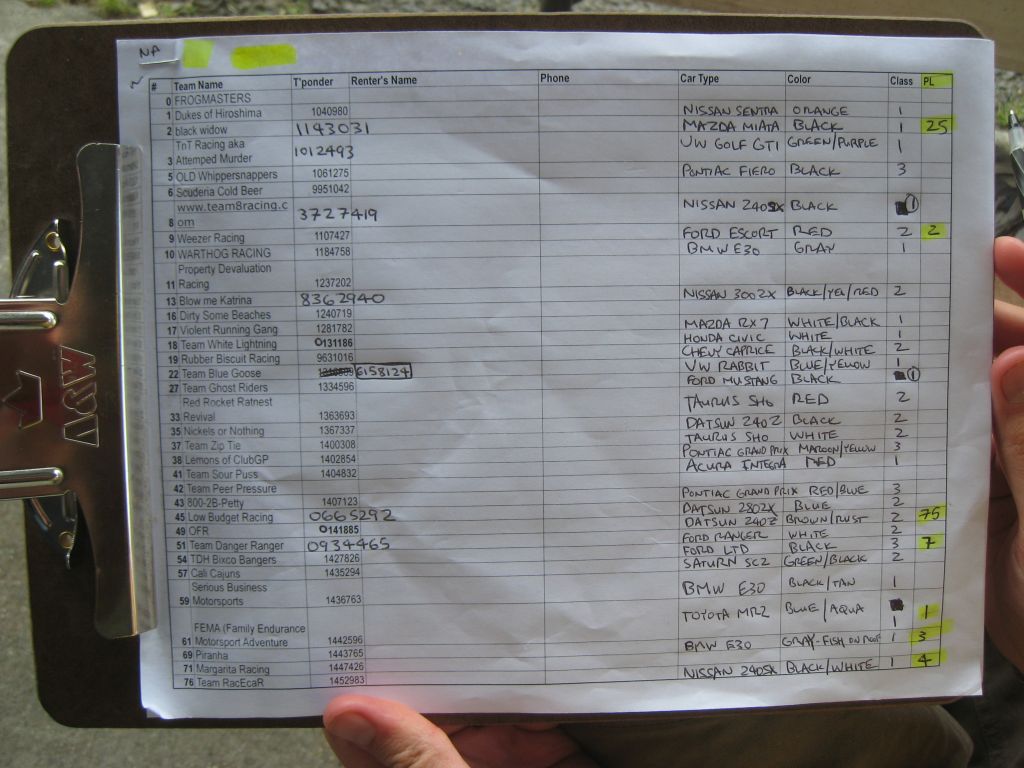 NA
# Team Name T'ponder Renter's Name Phone Car Type Color Class PL
0 FROGMASTERS
1 Dukes of Hiroshima 1040980 NISSAN SENTRA ORANGE 1
2 black widow 1143031 MAZDA MIATA BLACK 1 25
TnT Racing aka
3 Attemped Murder 1012493 VW GOLF GTI GREEN/PURPLE 1
5 OLD Whippersnappers 1061275 PONTIAC FIERO BLACK 3
6 Scuderia Cold Beer 9951042
www.team8racing.c
8 om 3727419 NISSAN 240SX BLACK 1
9 Weezer Racing 1107427 FORD ESCORT RED 2 2
10 WARTHOG RACING 1184758 BMW E30 GRAY 1
Property Devaluation
11 Racing 1237202
13 Blow me Katrina 8362940 NISSAN 300ZX BLACK/YEL/RED 2
16 Dirty Some Beaches 1240719
17 Violent Running Gang 1281782 MAZDA RX7 WHITE/BLACK 1
18 Team White Lightning 0131186 HONDA CIVIC WHITE 1
19 Rubber Biscuit Racing 9631016 CHEVY CAPRICE BLACK/WHITE 2
22 Team Blue Goose 6158124 VW RABBIT BLUE/YELLOW 1
27 Team Ghost Riders 1334596 FORD MUSTANG BLACK 1
Red Rocket Ratnest
33 Revival 1363693 TAURUS SHO RED 2
35 Nickels or Nothing 1367337 DATSUN 240Z BLACK 2
37 Team Zip Tie 1400308 TAURUS SHO WHITE 2
38 Lemons of ClubGP 1402854 PONTIAC GRAND PRIX MAROON/YELLOW 3
41 Team Sour Puss 1404832 ACURA INTEGRA RED 1
42 Team Peer Pressure
43 800-2B-Petty 1407123 PONTIAC GRAND PRIX RED/BLUE 3
45 Low Budget Racing 0665292 DATSUN 280ZX BLUE 2
49 OFR 0141885 DATSUN 240Z BROWN/RUST 2 75
51 Team Danger Ranger 0934465 FORD RANGER WHITE 2
54 TDH Bixco Bangers 1427826 FORD LTD BLACK 3 7
57 Cali Cajuns 1435294 SATURN SC2 GREEN/BLACK 2
Serious Business
59 Motorsports 1436763 BMW E30 BLACK/TAN 1
FEMA (Family Endurance
61 Motorsport Adventure 1442596 TOYOTA MR2 BLUE/AQUA 1 1
69 Piranha 1443765 BMW E30 GRAY-FISH ON ROOF 1 3
71 Margarita Racing 1447426
76 Team RacEcaR 1452983 NISSAN 240SX BLACK/WHITE 1 4